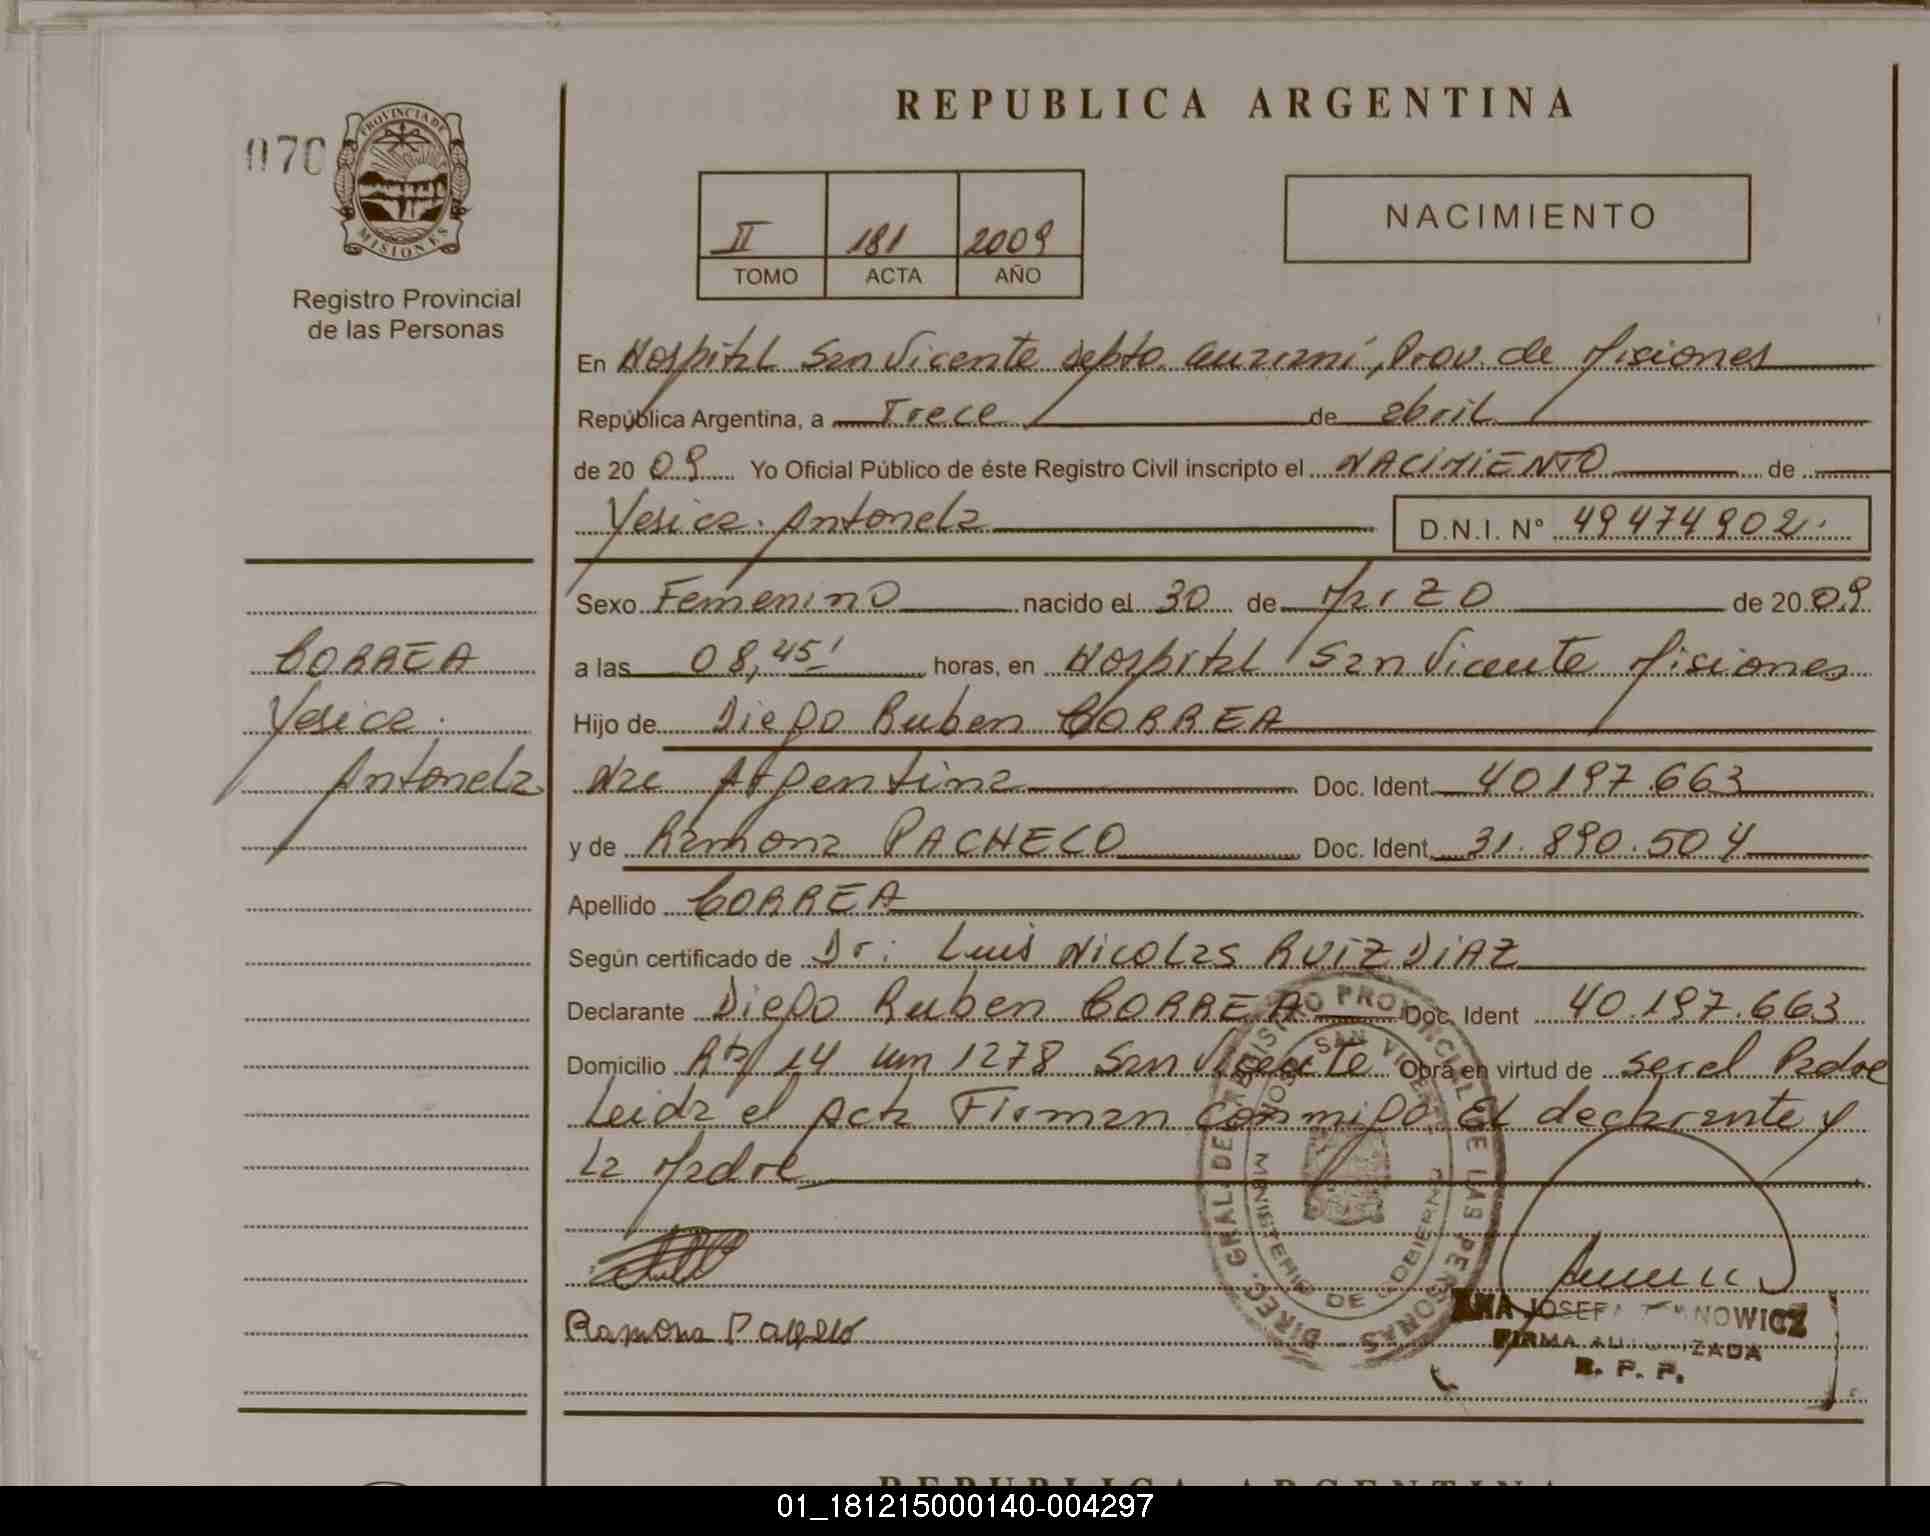 REPUBLICA ARGENTINA
070
PROVINCIA DE
MISIONES
Registro Provincial
de las Personas
II 181 2009
TOMO ACTA AÑO
NACIMIENTO
En Hospital San Vicente Depto. Guaraní, Prov. de Misiones
República Argentina, a Trece de abril
de 2009 Yo Oficial Público de éste Registro Civil inscripto el NACIMIENTO de
Yesica Antonela D.N.I. N° 49474902
Sexo Femenino nacido el 30 de Marzo de 2009
a las 08,45' horas, en Hospital San Vicente Misiones
Hijo de Diego Ruben CORREA
Nac Argentina Doc. Ident. 40197.663
y de Ramona PACHECO Doc. Ident. 31.890.504
Apellido CORREA
Según certificado de Dr: Luis Nicolas RUIZ DIAZ
Declarante Diego Ruben CORREA Doc. Ident 40.197.663
Domicilio Rta 14 km 1278 San Vicente Obra en virtud de ser el Padre
Leida el Acta Firman conmigo El declarante y
La Madre
CORREA
Yesica
Antonela
DIREC. GRAL. DE REGISTRO PROVINCIAL DE LAS PERSONAS
SAN VICENTE
MINISTERIO DE GOBIERNO
Ramona Pacheco
ANA JOSEFA
FIRMA AUTORIZADA
R. P. P.
REPUBLICA ARGENTINA
01_181215000140-004297